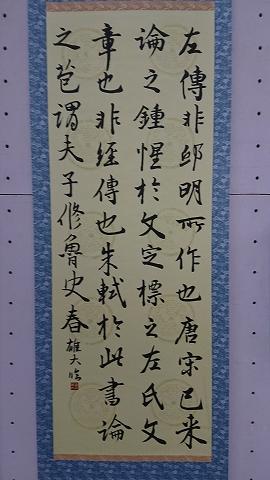 左傳非邱明所作也唐宋已来
論之鍾惺於文定標之左氏文
章也非経傳也朱軾於此書論
之苞謂夫子修魯史春
雄大臨